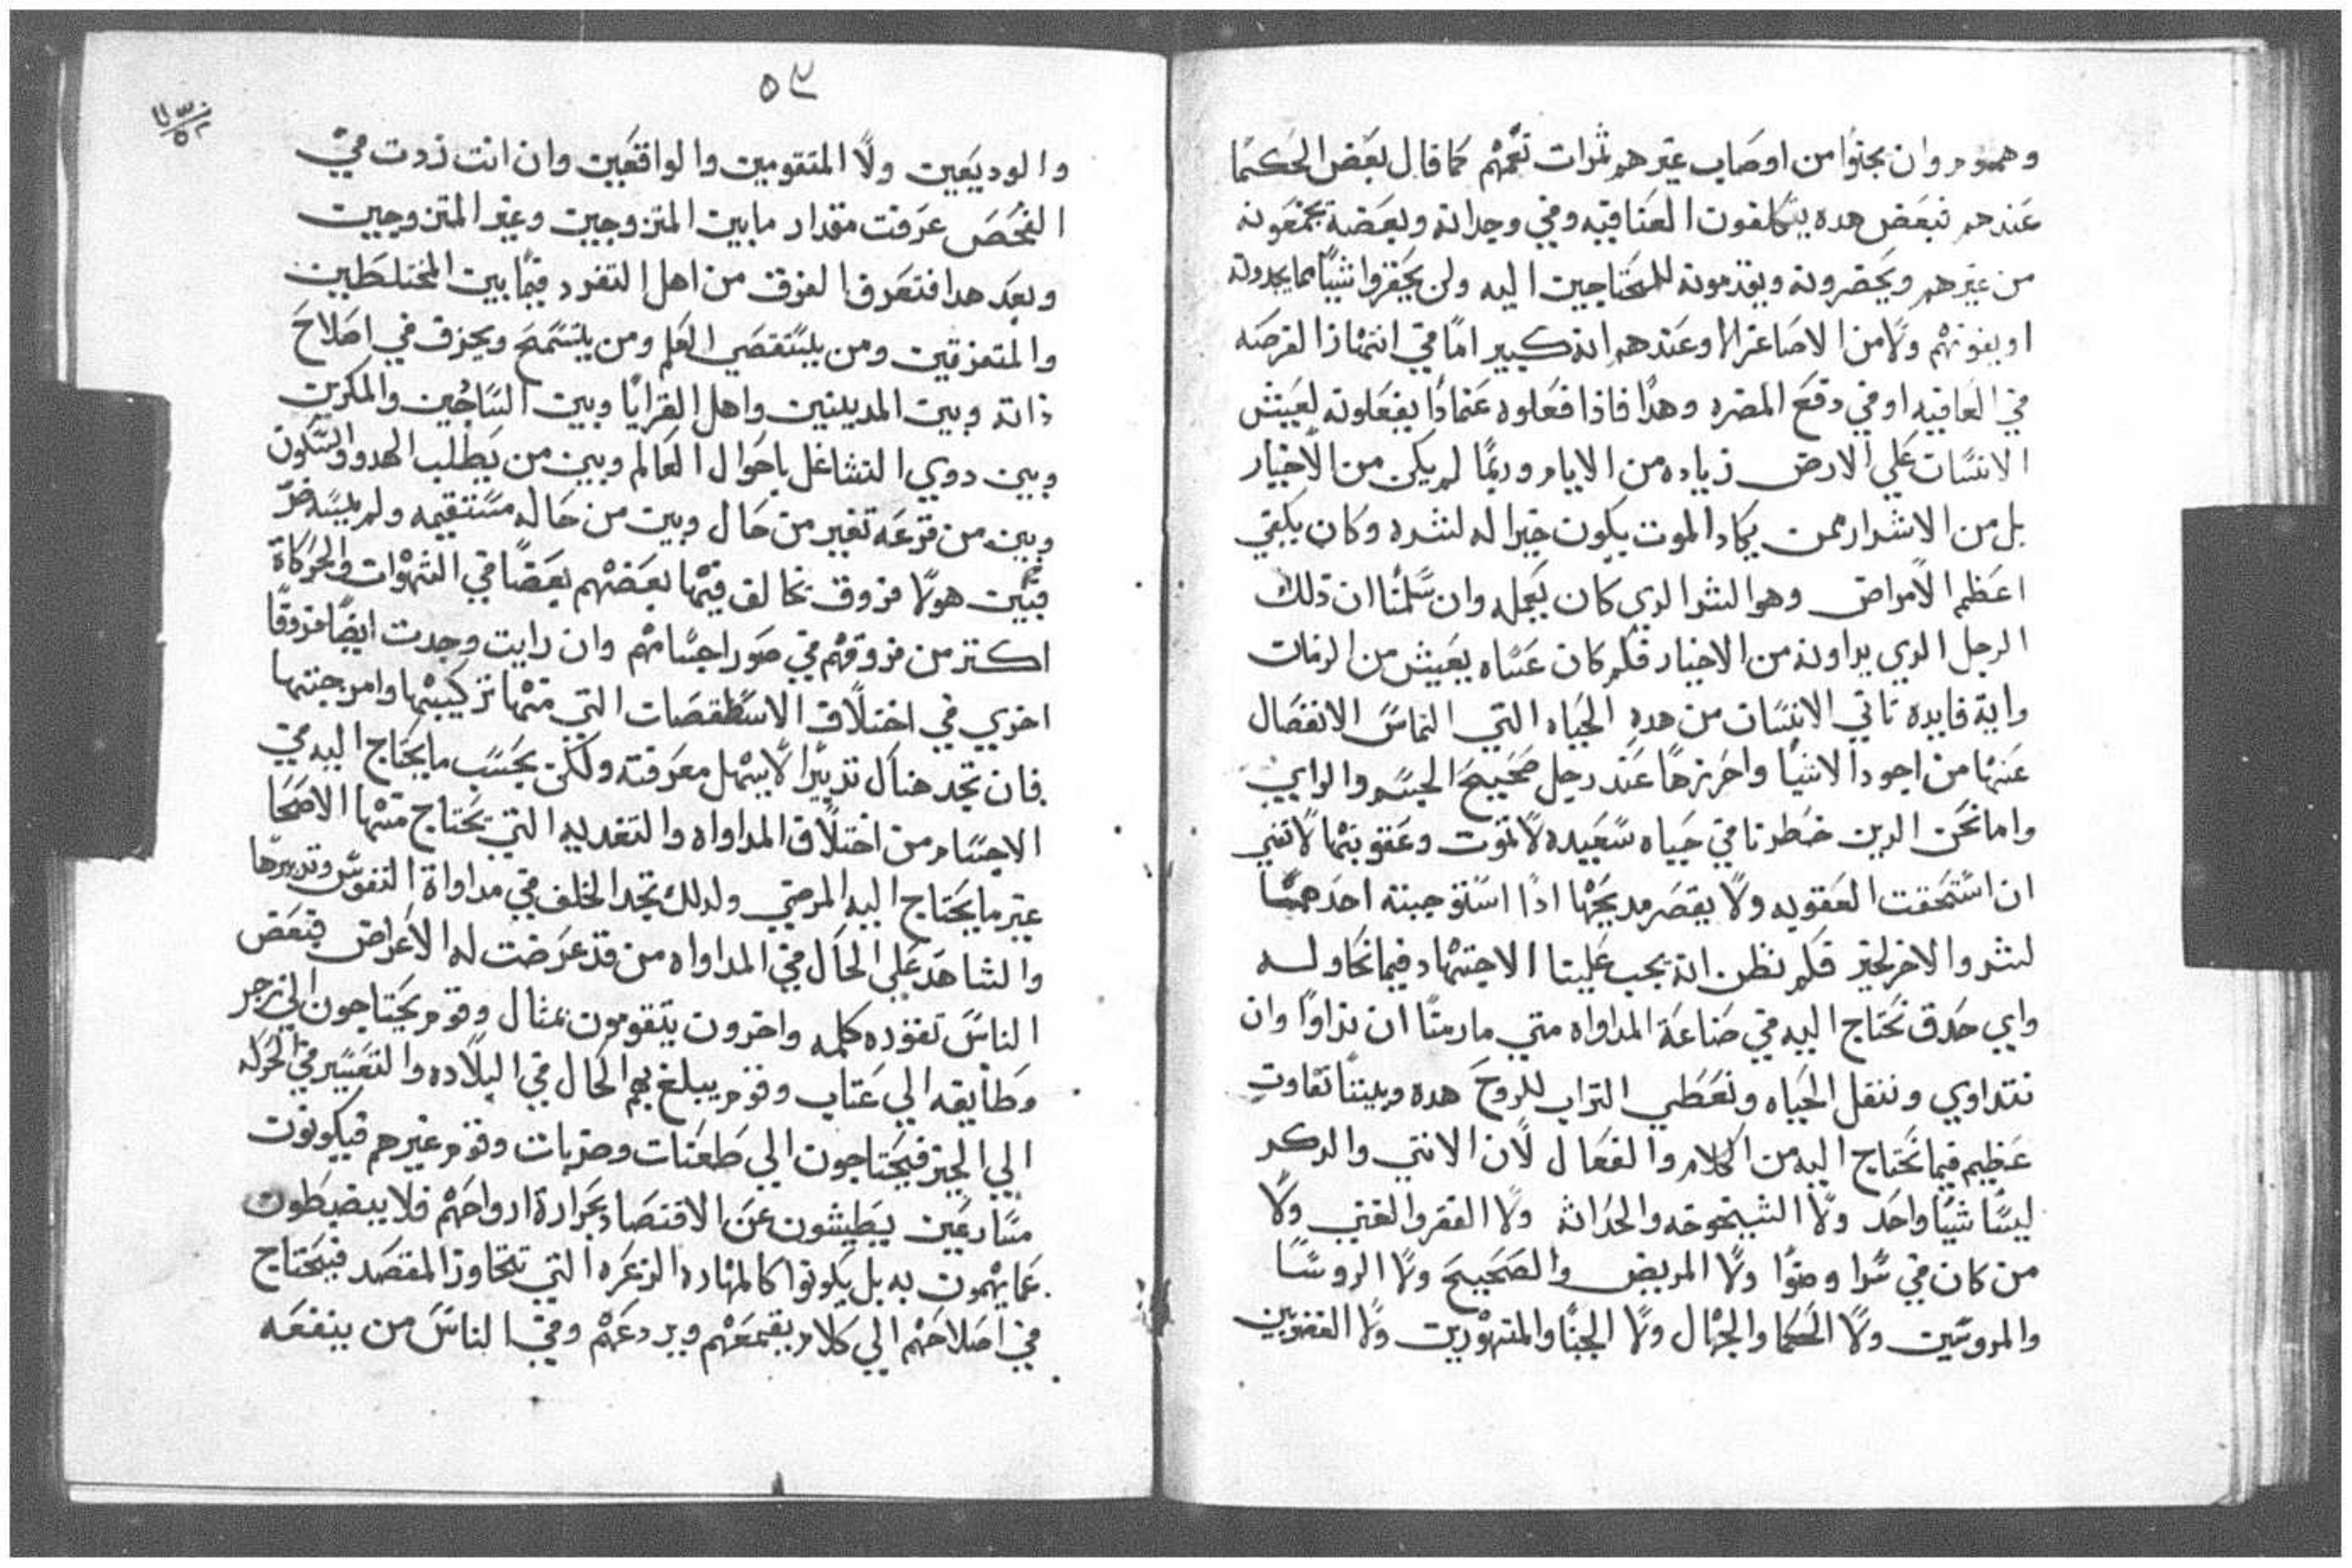 وهمهم وان يجنوا من اوصاب غيرهم ثمرات تعمهم كما قال بعض الحكما
عندهم فبعض هده يتكلفون العنا فيه وفي وجدانه وبعضه يجمعونه
من غيرهم ويحضرونه ويقدمونه للمحتاجين اليه ولن يحقروا شيا مما يجدونه
او يفوتهم ولا من الاصاغر الا وعندهم انه كبير اما في انتهاز الفرصه
في العافيه او في دفع المضره وهدا فاذا فعلوه عنادا يفعلونه ليعيش
الانسان علي الارض زياده من الايام وربما لم يكن من الاخيار
بل من الاشرار ممن يكاد الموت يكون خيرا له لشره وكان يكفي
اعظم الامراض وهو الشر الدي كان يعمله وان سلمنا ان ذلك
الرجل الدي يداونه من الاخيار فكم كان عساه يعيش من الزمان
واية فايده تاتي الانسان من هده الحياه التي التماس الانفصال
عنها من اجود الاشيا واحرزها عند رجل صحيح الجسم والراي
واما نحن الدين خطرنا في حياه سعيده لا تموت وعقوبتها لا تفني
ان استحقت العقوبه ولا يقصر مديحها ادا استوجبته احدهما
لشر والاخر لخير فكم نظن انه يجب علينا الاجتهاد فيما نحاوله
واي حدق نحتاج اليه في صناعة المداواه متي ما رمنا ان نداوا وان
نتداوي وننقل الحياه ونعطي التراب للروح هده وبيننا تفاوت
عظيم فيما نحتاج اليه من الكلام والفعال لان الانتي والدكر
ليسا شيا واحد ولا الشيخوخه والحداثه ولا الفقر والغني ولا
من كان في سرا وضرا ولا المريض والصحيح ولا الروسا
والمروسين ولا الحكما والجهال ولا الجبنا والمتهورين ولا الغضوبين
٥٣
والوديعين ولا المتقومين والواقعين وان انت زدت في
الفحص عرفت مقدار ما بين المتزوجين وغير المتزوجين
وبعد هدا فتعرف الفرق من اهل التفرد فيما بين المختلطين
والمتعزقين ومن يستقصي العلم ومن يتسمح ويحزف في اصلاح
ذاته وبين المدينين واهل القرايا وبين الساجين والمكرين
وبين دوي التشاغل باحوال العالم وبين من يطلب الهدو والسكون
وبين من قرعه تغير من حال وبين من حاله مستقيمه ولم يمسه ضر
فبين هولا فروق تخالف فيها بعضهم بعضا في الشهوات والحركاة
اكتر من فروقهم في صور اجسامهم وان رايت وجدت ايضا فروقا
اخري في اختلاف الاسطقصات التي منها تركيبها وامرجنتها
فان تجد هناك تدبيرا لا يسهل معرفته ولكن بحسب ما يحتاج اليه في
الاجسام من اختلاف المداواه والتغديه التي يحتاج منها الاصحا
غير ما يحتاج اليه المرضي ولدلك تجد الخلف في مداواة النفوس وتدبيرها
والشاهد علي الحال في المداواه من قد عرضت له الاعراض فبعض
الناس تقوده كلمه واخرون يتقومون بمثال وقوم يحتاجون الي زجر
وطايفه الي عتاب وقوم يبلغ بهم الحال في البلاده والتعسير في الحركه
الي الخير فيحتاجون الي طعنات وضربات وقوم غيرهم فيكونون
مسارعين يطيشون عن الاقتصاد بحرارة ارواحهم فلا ينضبطون
عما يهمون به بل يكونوا كالمهاره الزعره التي تتجاوز المقصد فيحتاج
في اصلاحهم الي كلام يقمعهم ويردعهم وفي الناس من ينفعه